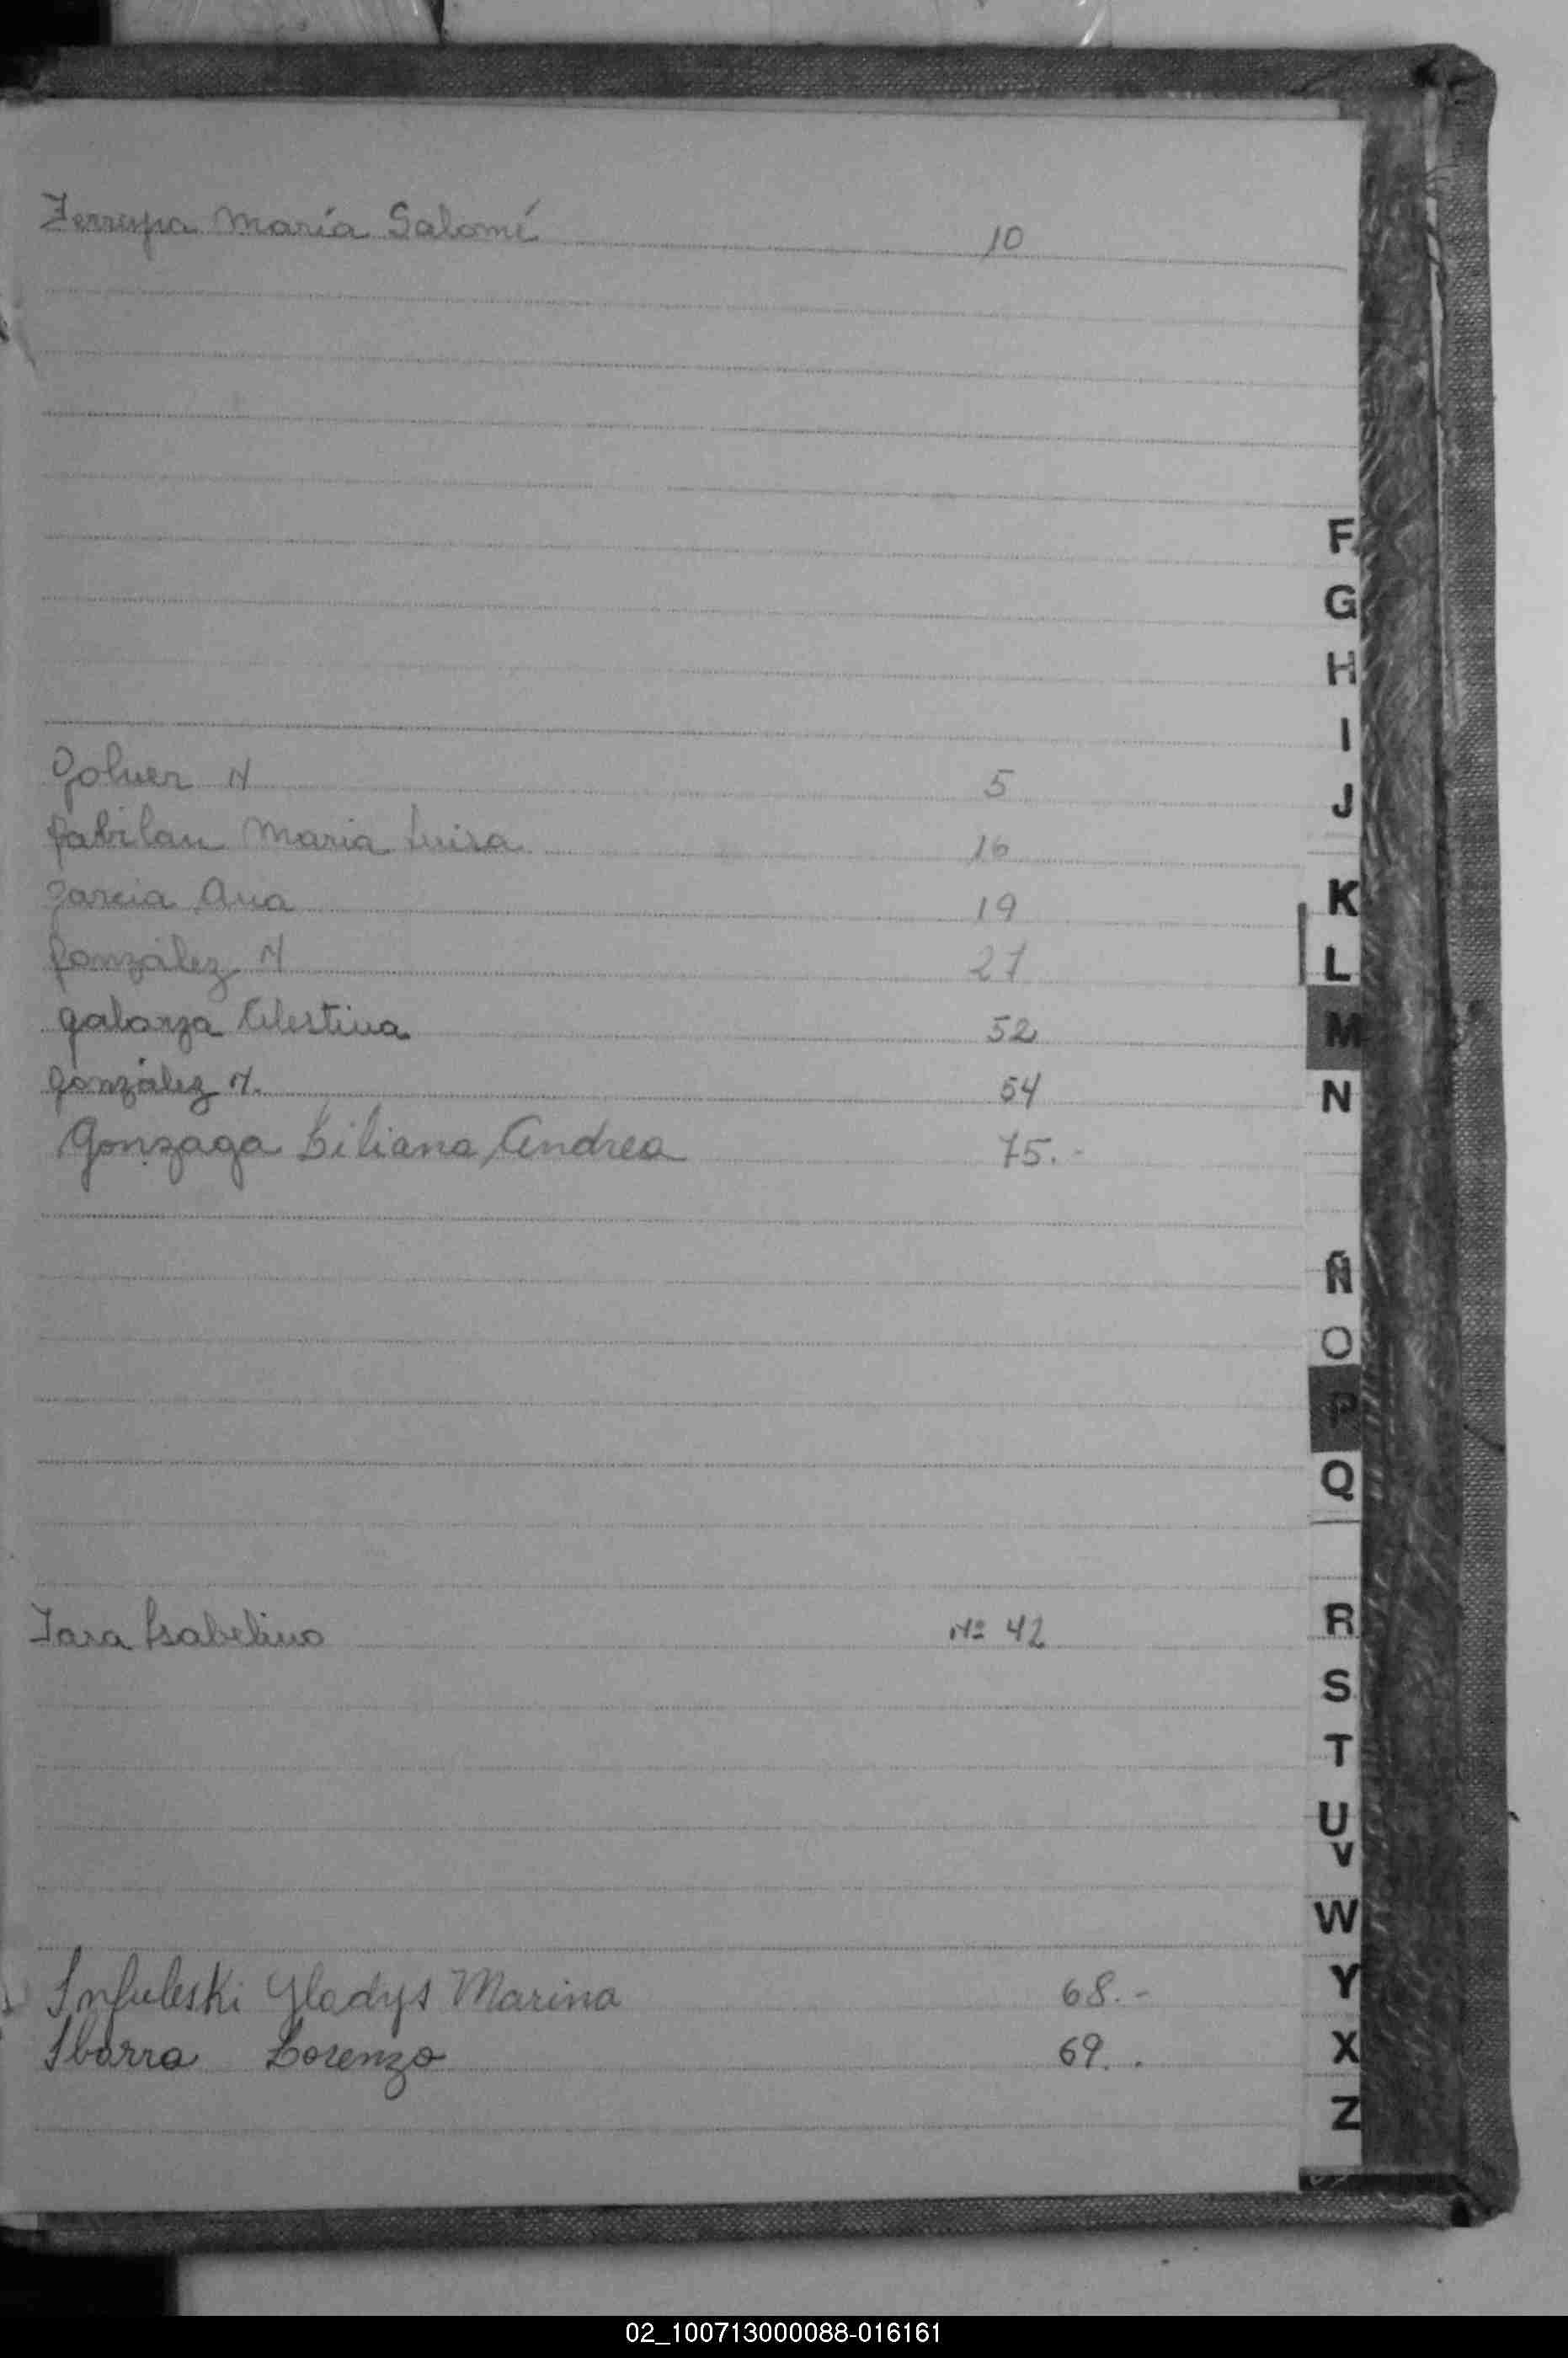 Ferreyra María Salomé 10
F
G
H
I
Golver N 5
J
Gabilan Maria Luisa 16
Garcia Ana 19
K
González N 27
L
Galarza Celestina 52
M
González N. 54
N
Gonzaga Liliana Andrea 75.-
Ñ
O
P
Q
Isabelino Nº 42
R
S
T
U
V
W
Gladys Marina 68.-
Y
Ibarra Lorenzo 69. .
X
Z
02_100713000088-016161